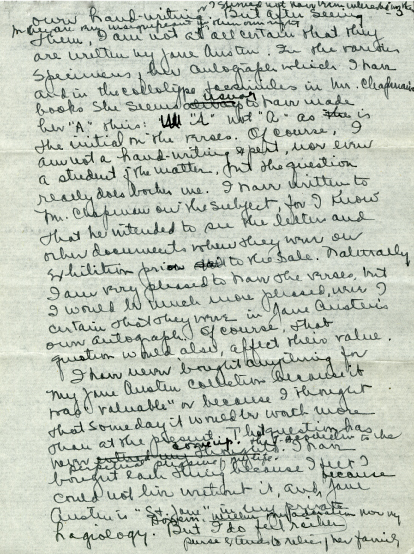 own hand-writing. But after seeing
them, I am not at all certain that they
are written by Jane Austen. In the various
specimens of her autograph which I have
and in the collotype facsimiles in Mr. Chapman's
books she seems usually to have made
her "A" thus: "A" not "a" as is
the initial on the verses. Of course, I
am not a hand-writing expert, nor even
a student of the matter, but the question
really does bother me. I have written to
Mr. Chapman on the subject, for I know
that he intended to see the letters and
other documents when they were on
exhibition prior to the sale. Naturally
I am very pleased to have the verses, but
I would be much more pleased, were I
certain that they were in Jane Austen's
own autograph. Of course, that
question would also affect their value.
I have never bought anything for
my Jane Austen collection because it
was "valuable" or because I thought
that some day it would be worth more
than at the present. That question has
never entered my thoughts. I have
bought each thing because I felt I
could not live without it, and, Jane
Austen is "St. Jane"
hagiology. But I do feel rather
her family